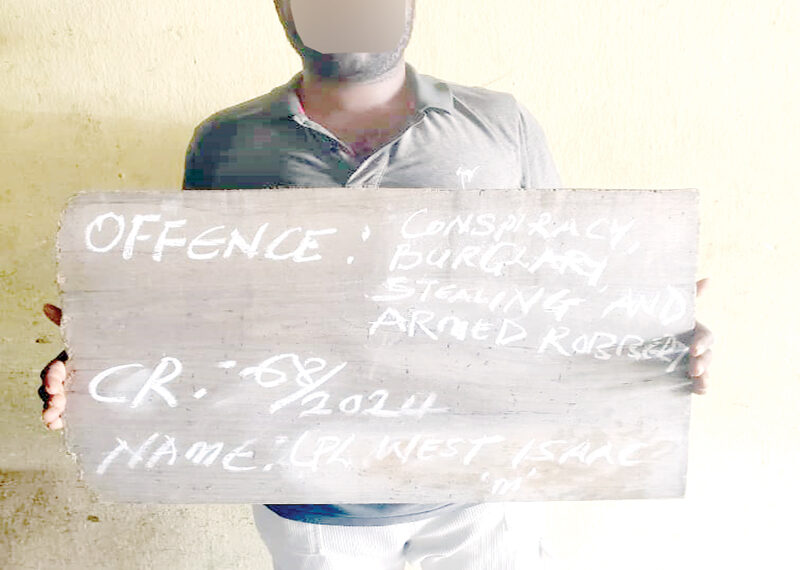 OFFENCE: CONSPIRACY,
BURGLARY,
STEALING AND
ARMED ROBBERY
CR:-68/2024
NAME: CPL WEST ISAAC
'M'